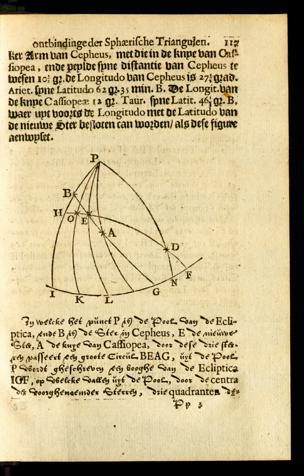 ontbindinge der Sphærische Triangulen. 117
ker Arm van Cepheus, met die in de knye van Cas-
siopea, ende peylde syne distantie van Cepheus te
wesen 10⅔ gr. de Longitudo van Cepheus is 27½ grad.
Ariet. syne Latitudo 62 gr. 35 min. B. De Longit. van
de knye Cassiopeæ 12 gr. Taur. syne Latit. 46½ gr. B,
waer uyt voorts de Longitudo met de Latitudo van
de nieuwe Ster besloten can worden, als dese figure
aenwyset.
P
B
H O E
A
D
F
I K L G N
In welcke het punct P is de Pool van de Ecli-
ptica, ende B is de Ster in Cepheus, E de nieuwe
Ster, A de knye van Cassiopea, door dese drie ster-
ren passeert een groote Circul BEAG, uyt de Pool
P wordt gheschreven een booghe van de Ecliptica
IGF, op welcke vallen uyt de Pool, door de centra
der voorghenoemde Sterren, drie quadranten
Pp 3